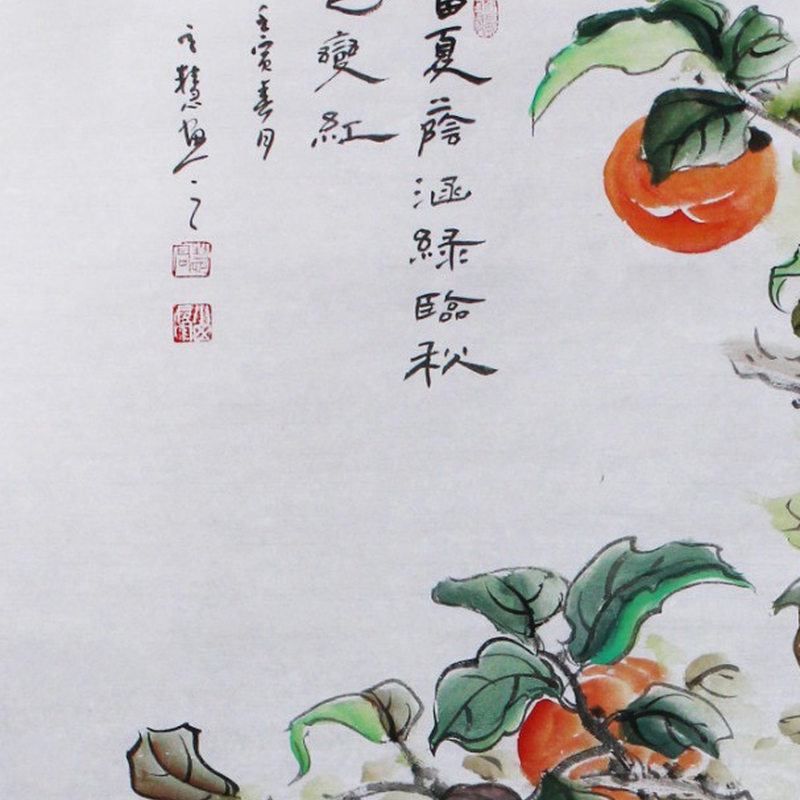 夏蔭涵綠臨秋
變紅
壬寅春月
慧畫之